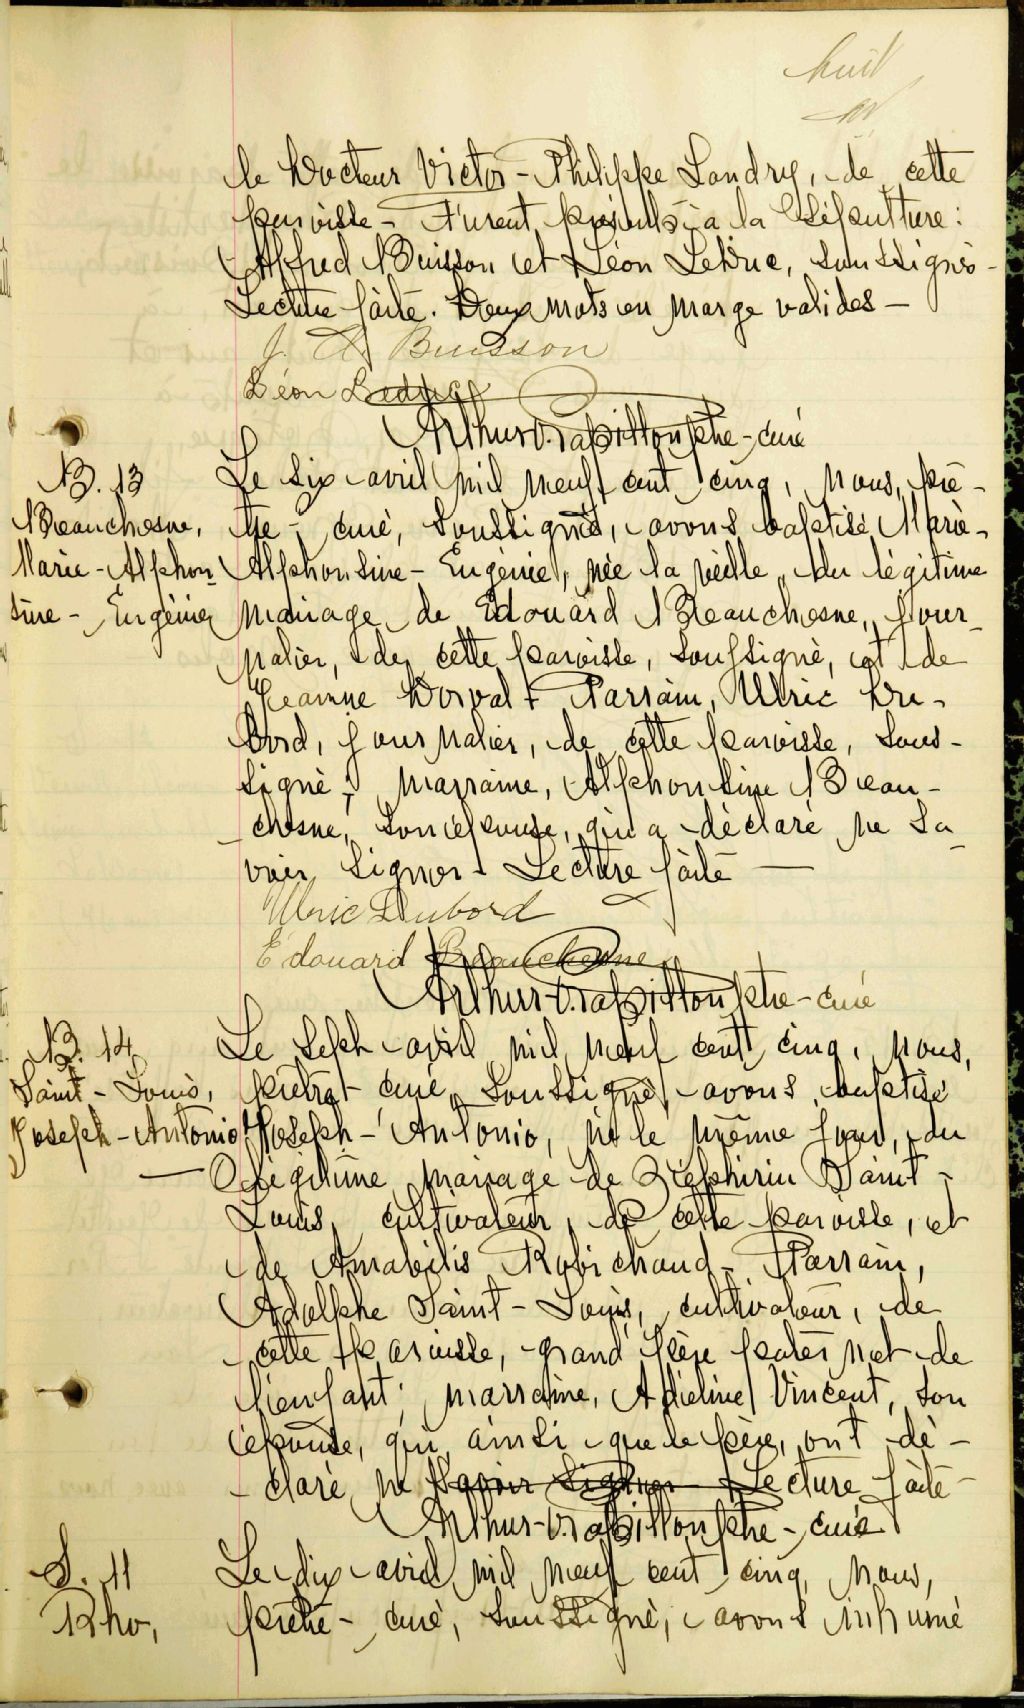 huit
le Docteur Victor-Philippe Landry, de cette
paroisse - Furent présents à la Sépulture:
Alfred Buisson et Léon Leduc, soussignés -
Lecture faite. Deux mots en marge valides -
J. A. Buisson
Léon Leduc
Arthur-O. Papillon ptre-curé
B. 13
Beauchesne,
Marie-Alphon
sine-Eugénie
Le six avril mil neuf cent cinq, nous, prê-
tre-curé, soussigné, avons baptisé Marie-
Alphonsine-Eugénie, née la veille, du légitime
mariage de Edouard Beauchesne, jour-
nalier, de cette paroisse, soussigné, et de
Jeanne Dorval - Parrain, Ulric Du-
bord, journalier, de cette paroisse, sous-
signé; marraine, Alphonsine Beau-
chesne, son épouse, qui a déclaré ne sa-
voir signer - Lecture faite -
Ulric Dubord
Édouard Beauchesne
Arthur-O. Papillon ptre-curé
B. 14
Saint-Louis,
Joseph-Antonio
Le Sept avril mil neuf cent cinq, nous,
prêtre-curé, soussigné, avons baptisé
Joseph-Antonio, né le même jour, du
légitime mariage de Zéphirin Saint-
Louis, cultivateur, de cette paroisse, et
de Amabilis Robichaud - Parrain,
Adolphe Saint-Louis, cultivateur, de
cette paroisse, grand'père paternel de
l'enfant; marraine, Adéline Vincent, son
épouse, qui, ainsi que le père, ont dé-
claré ne savoir signer - Lecture faite -
Arthur-O. Papillon ptre-curé
S. 11
Rho,
Le dix avril mil neuf cent cinq, nous,
prêtre-curé, soussigné, avons inhumé